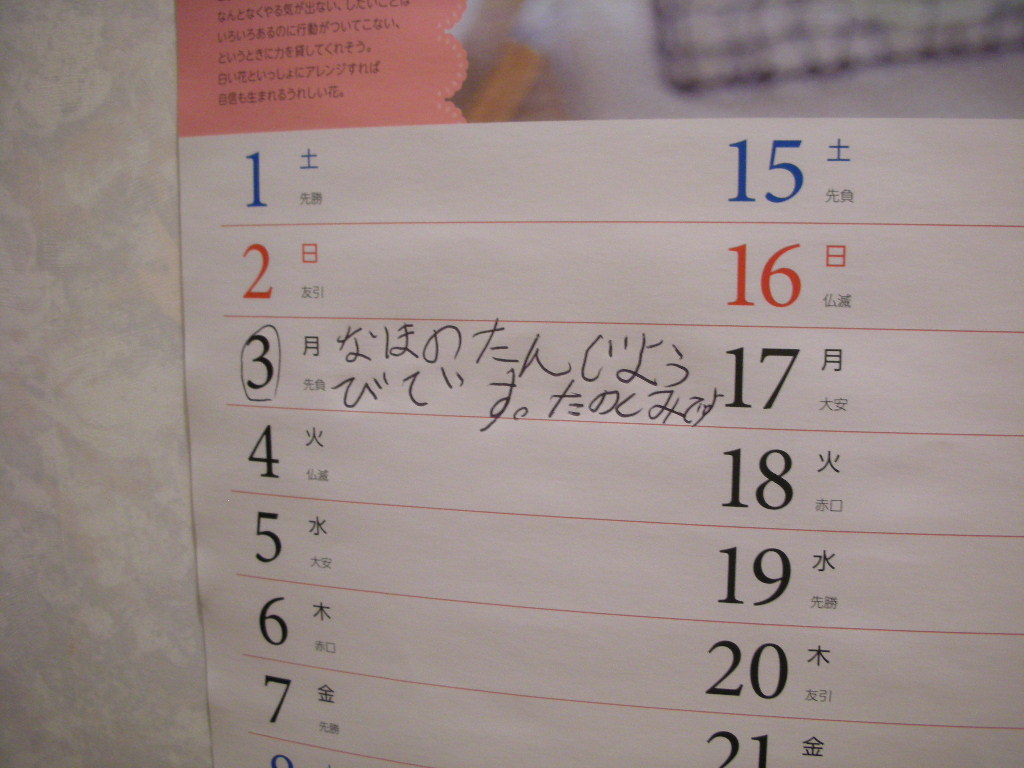 なんとなくやる気が出ない、したいことは
いろいろあるのに行動がついてこない、
というときに力を貸してくれそう。
白い花といっしょにアレンジすれば
自信も生まれるうれしい花。
1 土 先勝
2 日 友引
3 月 先負
なほのたんじよう
びでいす。たのしみです
4 火 仏滅
5 水 大安
6 木 赤口
7 金 先勝
15 土 先負
16 日 仏滅
17 月 大安
18 火 赤口
19 水 先勝
20 木 友引
21 金